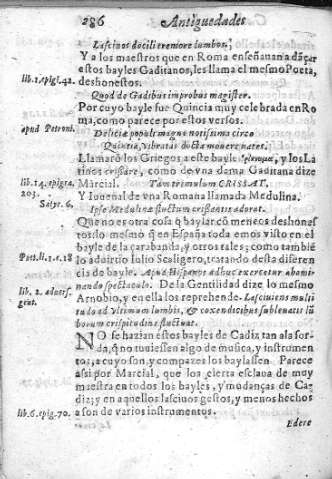 286 Antiguedades
Lascinos docili tremore lumbos,
Y a los maestros que en Roma enseñauan a dāçar
lib.1.epigr.42. estos bayles Gaditanos, les llama el mesmo Poeta,
deshonestos.
Quod de Gadibus improbus magister.
Por cuyo bayle fue Quincia muy celebrada en Ro
ma, como parece por estos versos.
apud Petroni. Delicia populi magno notissima circo
Quintia, vibratas docta mouere nates.
Llamarō los Griegos a este bayle y los La
tinos crissare, como de vna dama Gaditana dize
lib.14.epigra. Marcial. Tam tremulum CRISSAT.
203. Y Iuuenal de vna Romana llamada Medulina.
Satyr. 6. Ipse Medulinæ fluctum crissantis adorat.
Que no es otra cosa q̄ baylar cō meneos deshones
tos: lo mesmo q̄ en España todos emos visto en el
bayle de la çarabanda, y otros tales; como tambiē
Poet.li.1.c.18 lo aduirtio Iulio Scaligero, tratando desta diferen
cia de bayle. Apud Hispanos adhuc exercetur abomi
nando spectaculo. De la Gentilidad dize lo mesmo
lib. 2. aduers. Arnobio, y en ella los reprehende. Lasciuiens multi
gent. tudo ad vltimum lumbis, & coxendicibus subleuatis lū
borum crispitudine fluctuat.
NO se hazian estos bayles de Cadiz tan ala sor
da, q̄ no tuuiessen algo de musica, y instrumen
tos, a cuyo son, y compazes los baylassen. Parece
assi por Marcial, que loa cierta esclaua de muy
maestra en todos los bayles, y mudanças de Ca
diz; y en aquellos lasciuos gestos, y meneos hechos
lib.6.epig.70. a son de varios instrumentos.
Edere